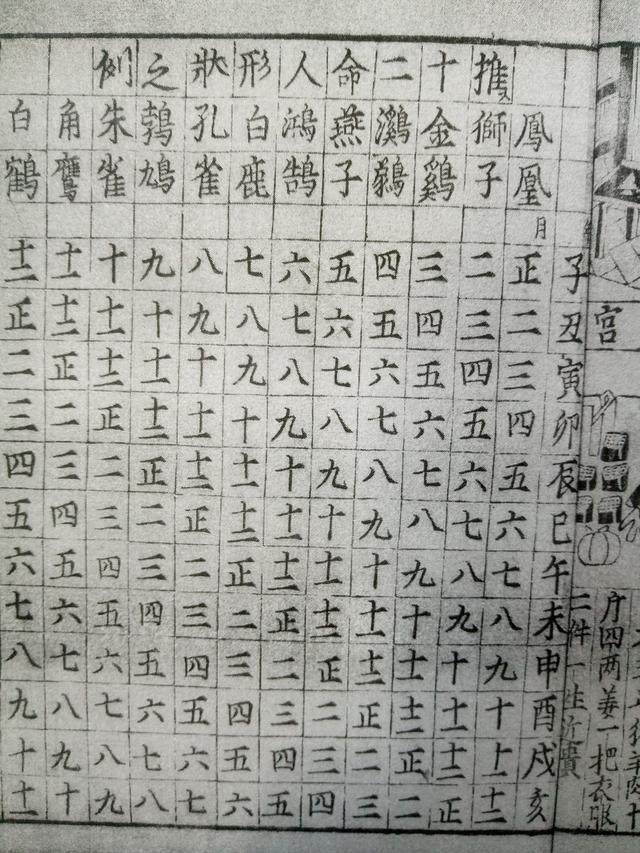 推十二命人形狀之例
月
子丑寅卯辰巳午未申酉戌亥
鳳凰正二三四五六七八九十十一十二
獅子二三四五六七八九十十一十二正
金鷄三四五六七八九十十一十二正二
鸂鶒四五六七八九十十一十二正二三
燕子五六七八九十十一十二正二三四
鴻鵠六七八九十十一十二正二三四五
白鹿七八九十十一十二正二三四五六
孔雀八九十十一十二正二三四五六七
鵓鳩九十十一十二正二三四五六七八
朱雀十十一十二正二三四五六七八九
角鷹十一十二正二三四五六七八九十
白鶴十二正二三四五六七八九十十一
宮
羊肉十
片四两姜一把衣服
二件一生近貴